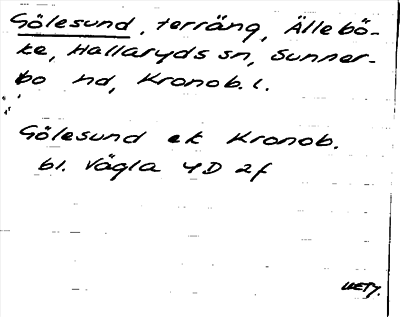 Gölesund, terräng, Ällebö-
ke, Hallaryds sn, Sunner-
bo hd, Kronob. l.
Gölesund ek Kronob.
bl. Vägla 4D 2f